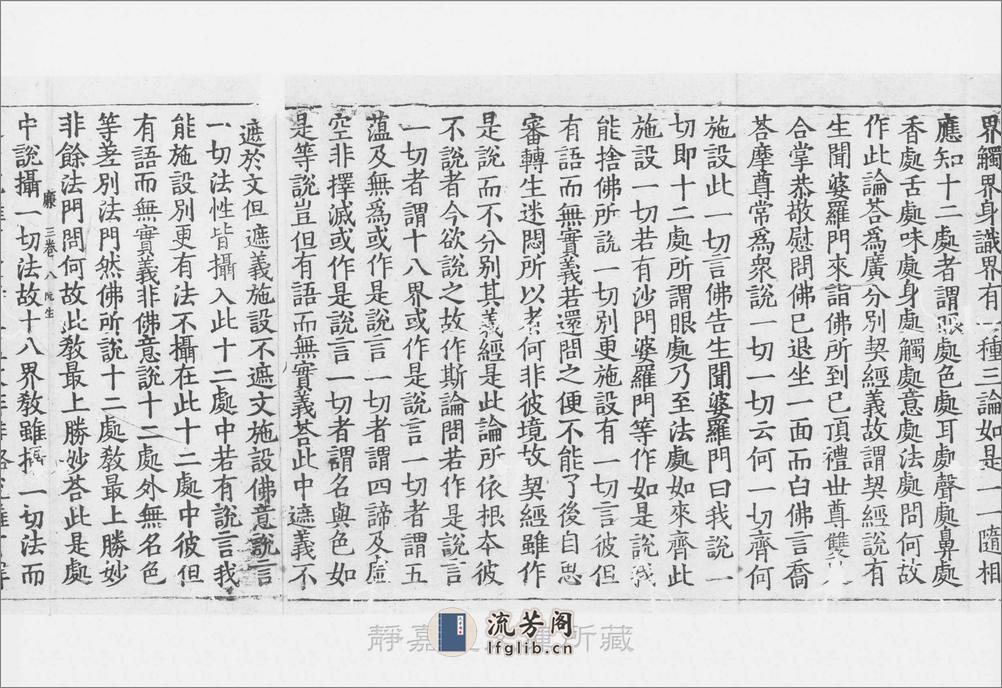 界觸界身識界有一種三論如是一一隨相
應知十二處者謂眼處色處耳處聲處鼻處
香處舌處味處身處觸處意處法處問何故
作此論荅爲廣分別契經義故謂契經說有
生聞婆羅門來詣佛所到已頂禮世尊雙足
合掌恭敬慰問佛已退坐一面而白佛言喬
荅摩尊常爲衆說一切一切云何一切齊何
施設此一切言佛告生聞婆羅門曰我說一
切即十二處所謂眼處乃至法處如來齊此
施設一切若有沙門婆羅門等作如是說我
能捨佛所說一切別更施設有一切言彼但
有語而無實義若還問之便不能了後自思
審轉生迷悶所以者何非彼境故契經雖作
是說而不分別其義經是此論所依根本彼
不說者今欲說之故作斯論問若作是說言
一切者謂十八界或作是說言一切者謂五
蘊及無爲或作是說言一切者謂四諦及虛
空非擇滅或作是說言一切者謂名與色如
是等說豈但有語而無實義荅此中遮義不
遮於文但遮義施設不遮文施設佛意說言
一切法性皆攝入此十二處中若有說言我
能施設別更有法不攝在此十二處中彼但
有語而無實義非佛意說十二處外無名色
等差別法門然佛所說十二處教最上勝妙
非餘法門問何故此教最上勝妙荅此是處
三卷 八
中說攝一切法故十八界教雖攝一切法而
靜嘉 所藏
流芳阁
lfglib.cn